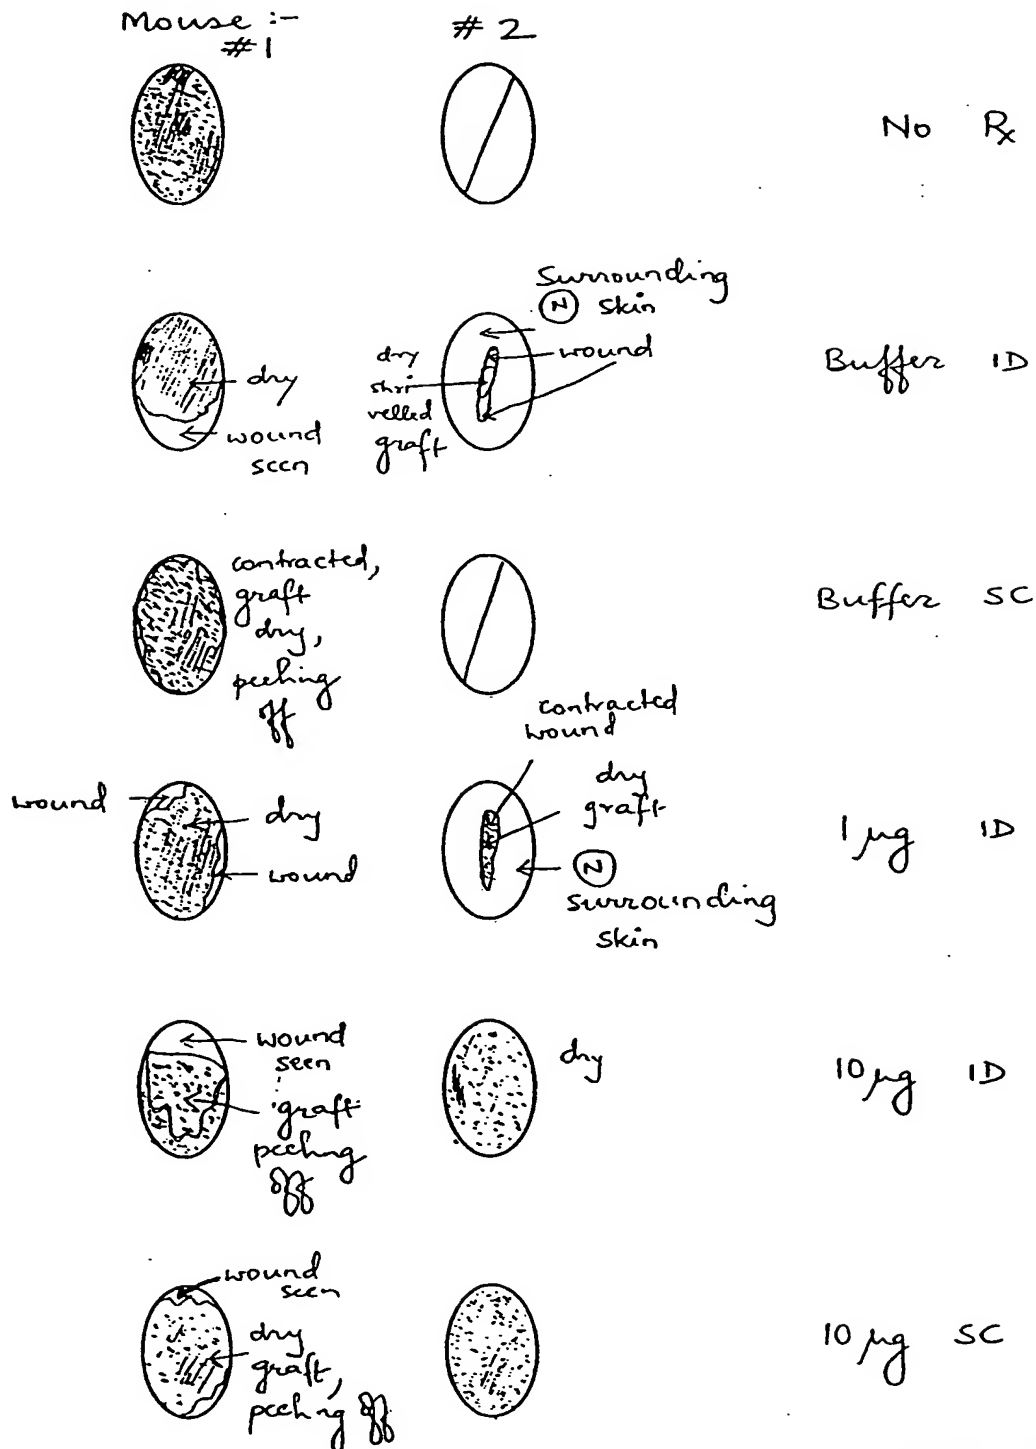 Mouse :-
#1 #2
No Rx
Surrounding
(N) skin
wound
dry
shri
velled
graft
dry
wound
seen
Buffer ID
contracted,
graft
dry,
peeling
off
Buffer SC
contracted
wound
dry
graft
wound
dry
wound
(N)
surrounding
skin
1 µg ID
wound
seen
graft
peeling
off
dry
10 µg ID
wound
seen
dry
graft,
peeling off
10 µg SC